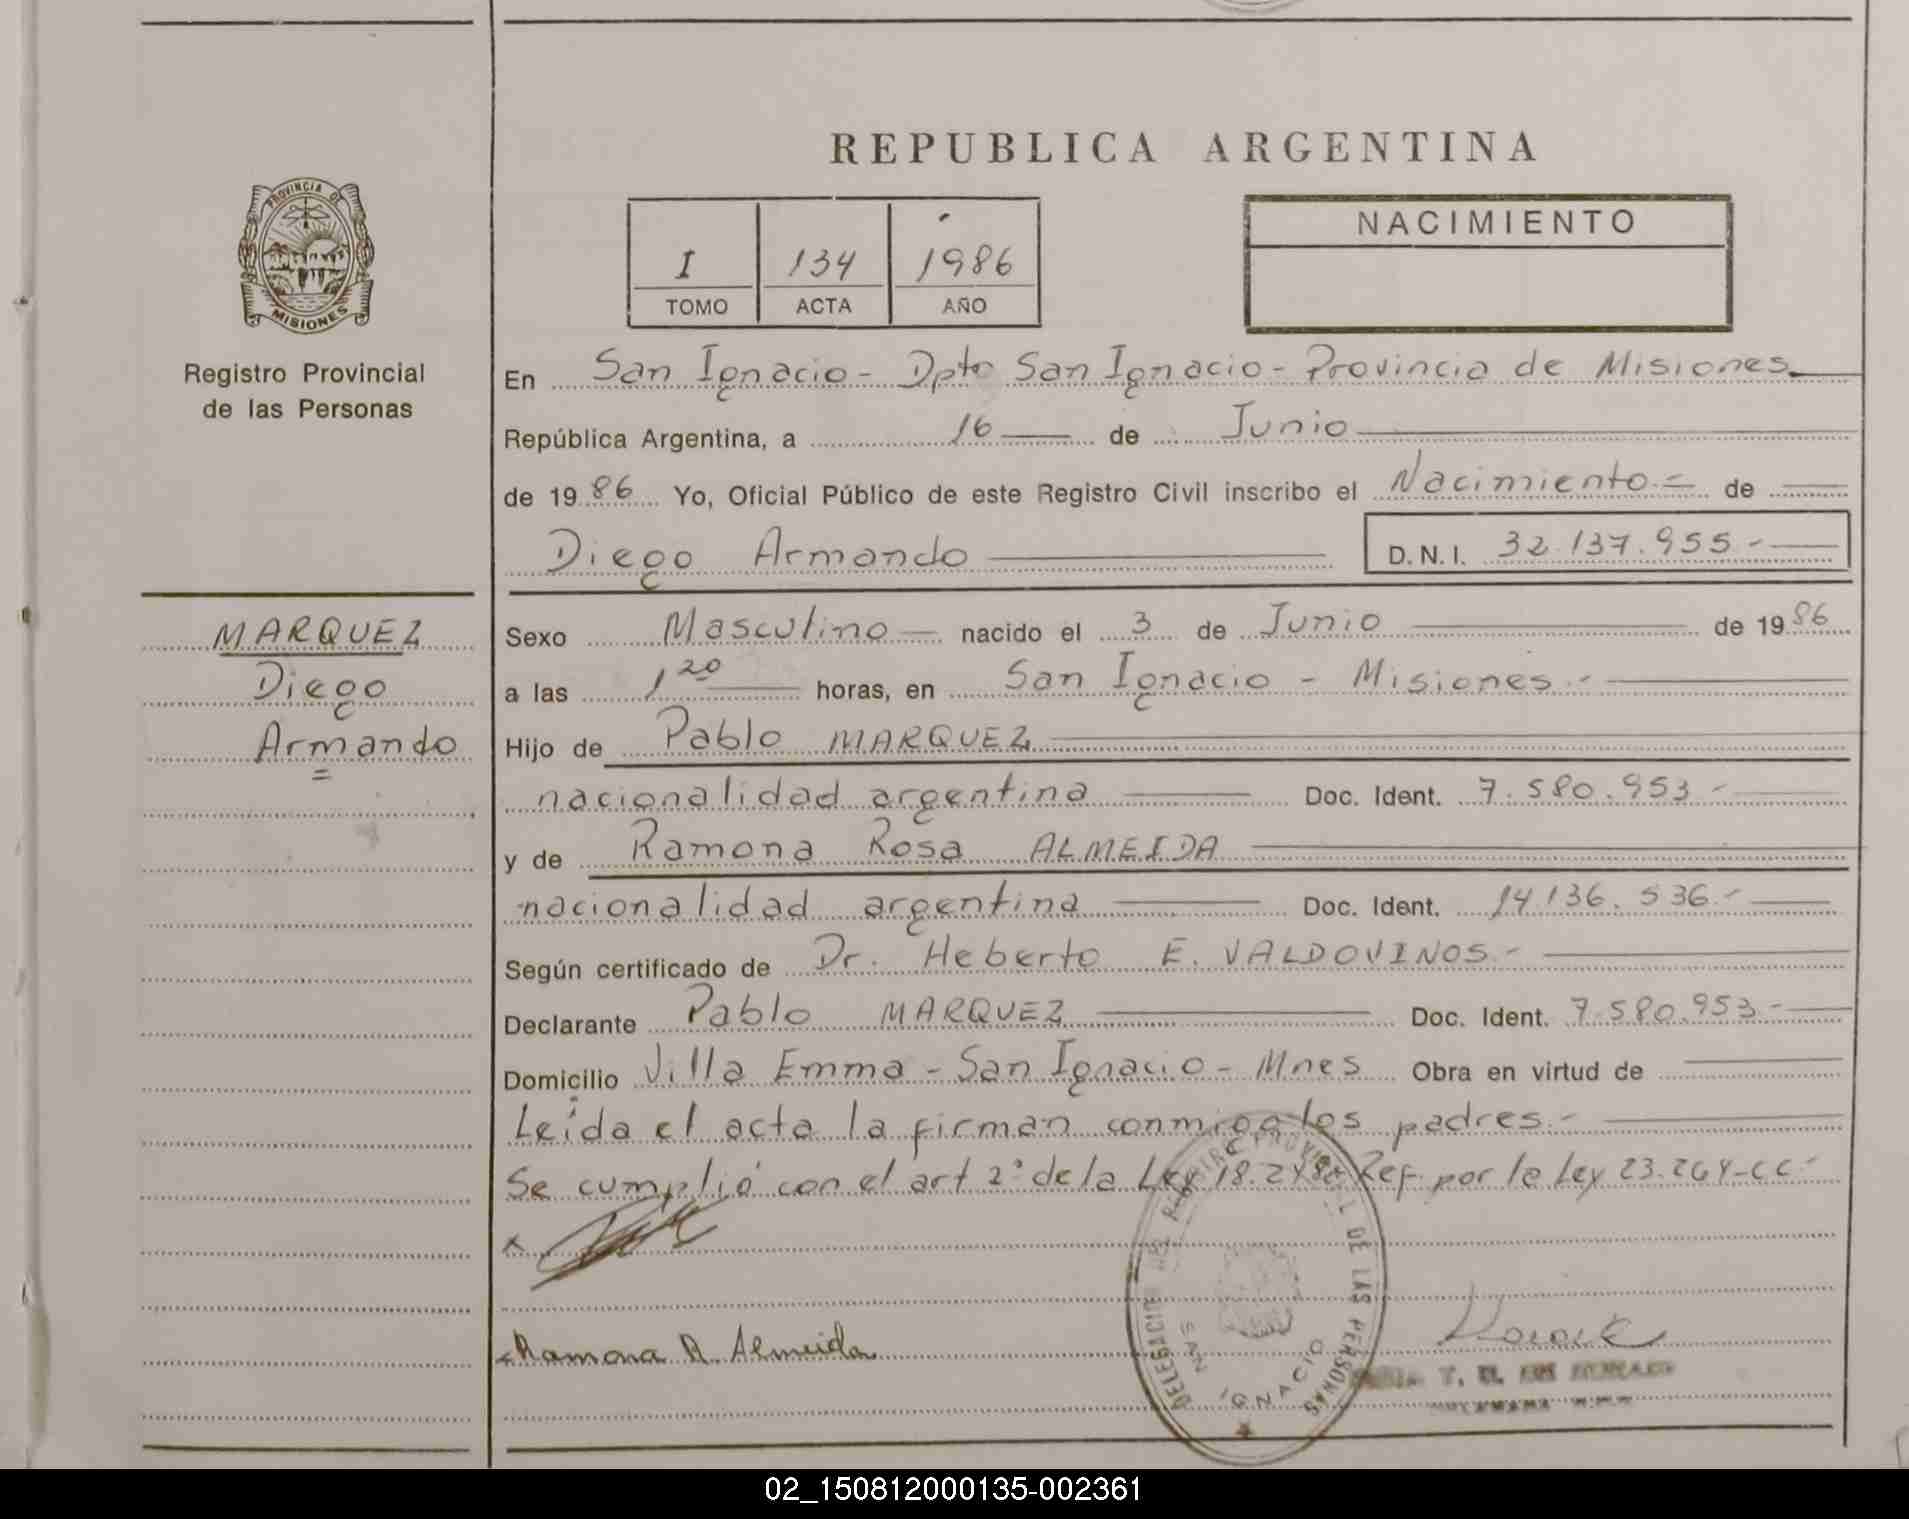 REPUBLICA ARGENTINA
PROVINCIA DE
MISIONES
Registro Provincial
de las Personas
I 134 1986
TOMO ACTA AÑO
NACIMIENTO
En San Ignacio - Dpto San Ignacio - Provincia de Misiones
República Argentina, a 16 de Junio
de 1986 Yo, Oficial Público de este Registro Civil inscribo el Nacimiento - de
Diego Armando D.N.I. 32.137.955.-
MARQUEZ
Diego
Armando
Sexo Masculino nacido el 3 de Junio de 1986
a las 1 20 horas, en San Ignacio - Misiones.-
Hijo de Pablo MARQUEZ
nacionalidad argentina Doc. Ident. 7.580.953.-
y de Ramona Rosa ALMEIDA
nacionalidad argentina Doc. Ident. 14.136.536.-
Según certificado de Dr. Heberto E. VALDOVINOS.-
Declarante Pablo MARQUEZ Doc. Ident. 7.580.953.-
Domicilio Villa Emma - San Ignacio - Mnes Obra en virtud de
Leída el acta la firman conmigo los padres.-
Se cumplió con el art 2º de la Ley 18.248 Ref. por la Ley 23.264-CC-
x
Ramona R. Almeida
REGISTRO PROVINCIAL DE LAS PERSONAS
SAN IGNACIO
02_150812000135-002361